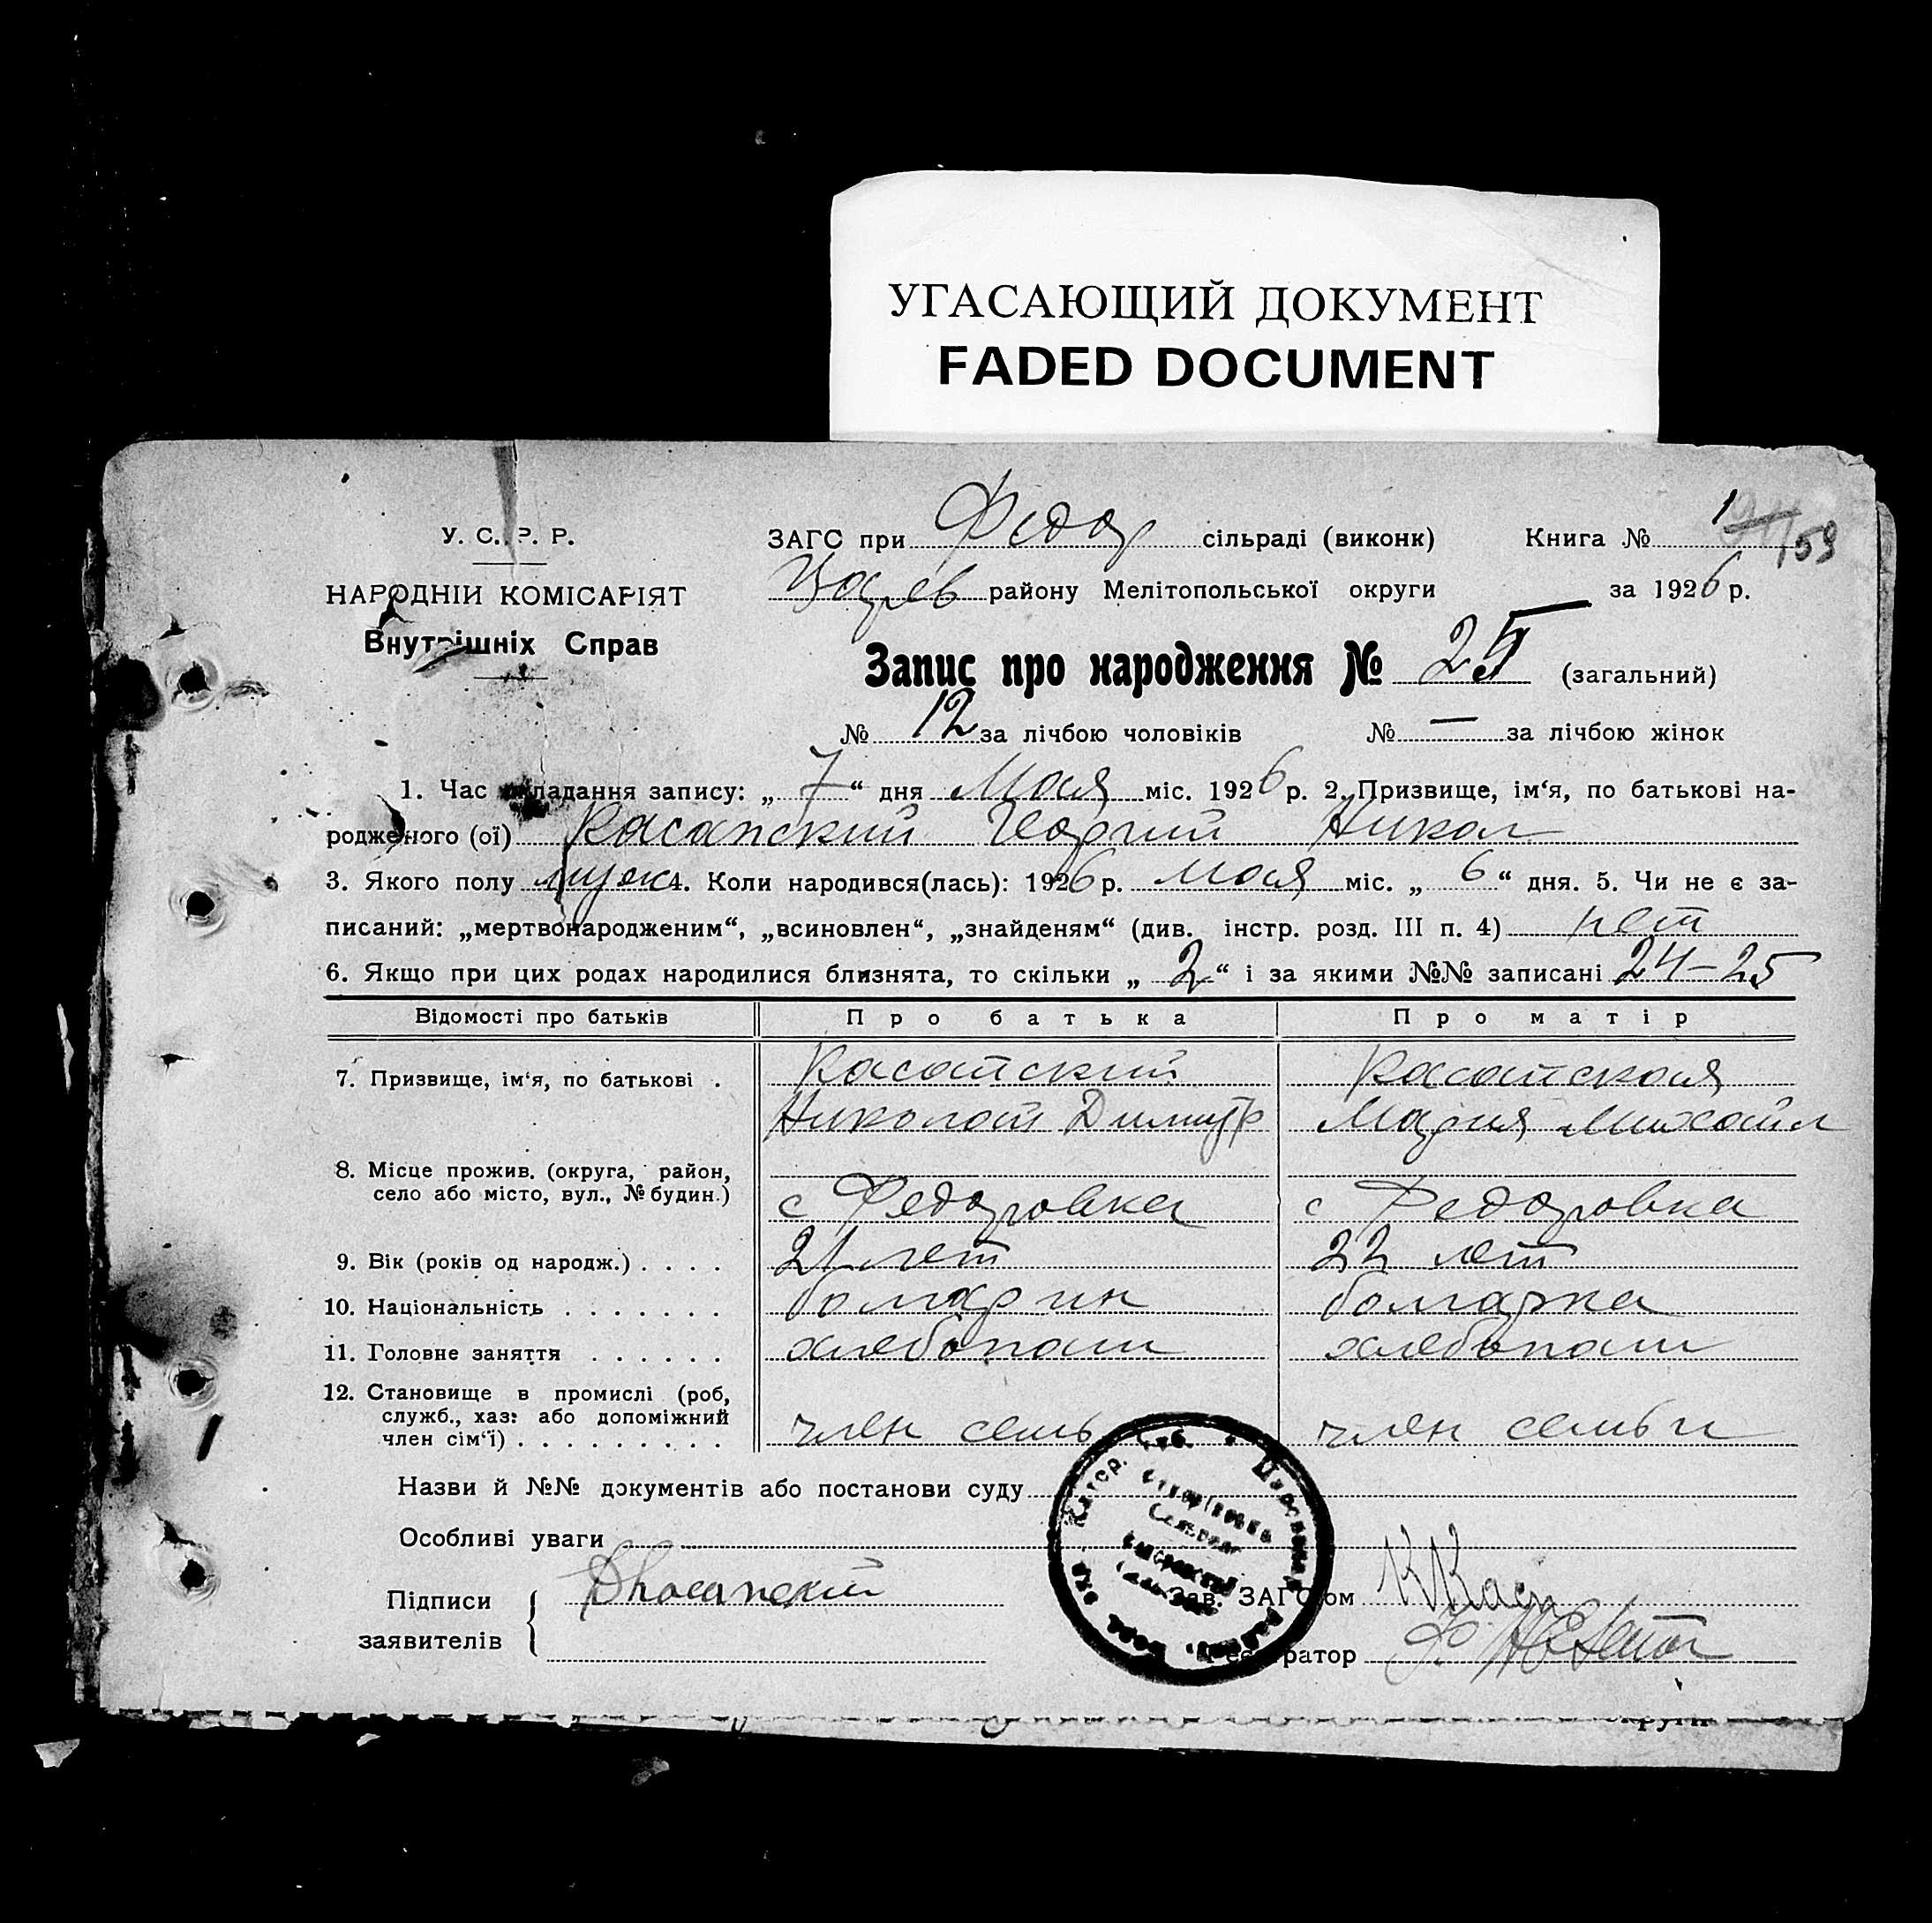 УГАСАЮЩИЙ ДОКУМЕНТ
FADED DOCUMENT
У. С. Р. Р.
НАРОДНІЙ КОМІСАРІЯТ
Внутрішніх Справ
ЗАГС при Федор сільраді (виконк) Книга № 1 59
Царев району Мелітопольської округи за 1926 р.
Запис про народження № 25 (загальний)
№ 12 за лічбою чоловіків № — за лічбою жінок
1. Час складання запису: „ 7 “ дня Мая міс. 1926 р. 2. Призвище, ім‘я, по батькові на-
родженого (ої) Касапский Георгий Никол
3. Якого полу мужс 4. Коли народився(лась): 1926 р. мая міс. „ 6 “ дня. 5. Чи не є за-
писаний: „мертвонародженим“, „всиновлен“, „знайденям“ (див. інстр. розд. III п. 4) нет
6. Якщо при цих родах народилися близнята, то скільки „ 2 “ і за якими №№ записані 24–25
Відомості про батьків Про батька Про матір
7. Призвище, ім‘я, по батькові . Касапский Касапская
Николай Димитр Мария Михайл
8. Місце прожив. (округа, район,
село або місто, вул., № будин.) с Федоровка с Федоровка
9. Вік (років од народж.) . . . . 21 лет 22 лет
10. Національність . . . . . . . болгарин болгарка
11. Головне заняття . . . . . . хлебопаш хлебопаш
12. Становище в промислі (роб,
служб., хаз: або допоміжний
член сім‘ї) . . . . . . . . . член семь член семьи
Назви й №№ документів або постанови суду
Особливі уваги
Підписи
заявителів
Зав. ЗАГС‘ом
Реєстратор